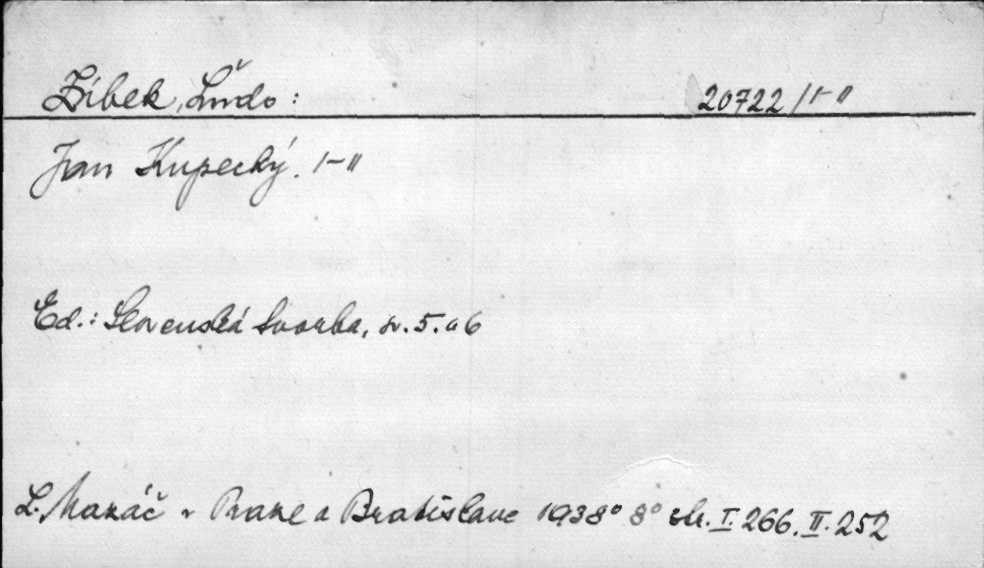 Zúbek, Ľudo: 20722/I-II
Jan Kupecký. I-II
Ed.: Slovenská tvorba, sv. 5. a 6
L. Mazáč v Praze a Bratislave 1938° 8° str. I. 266. II. 252